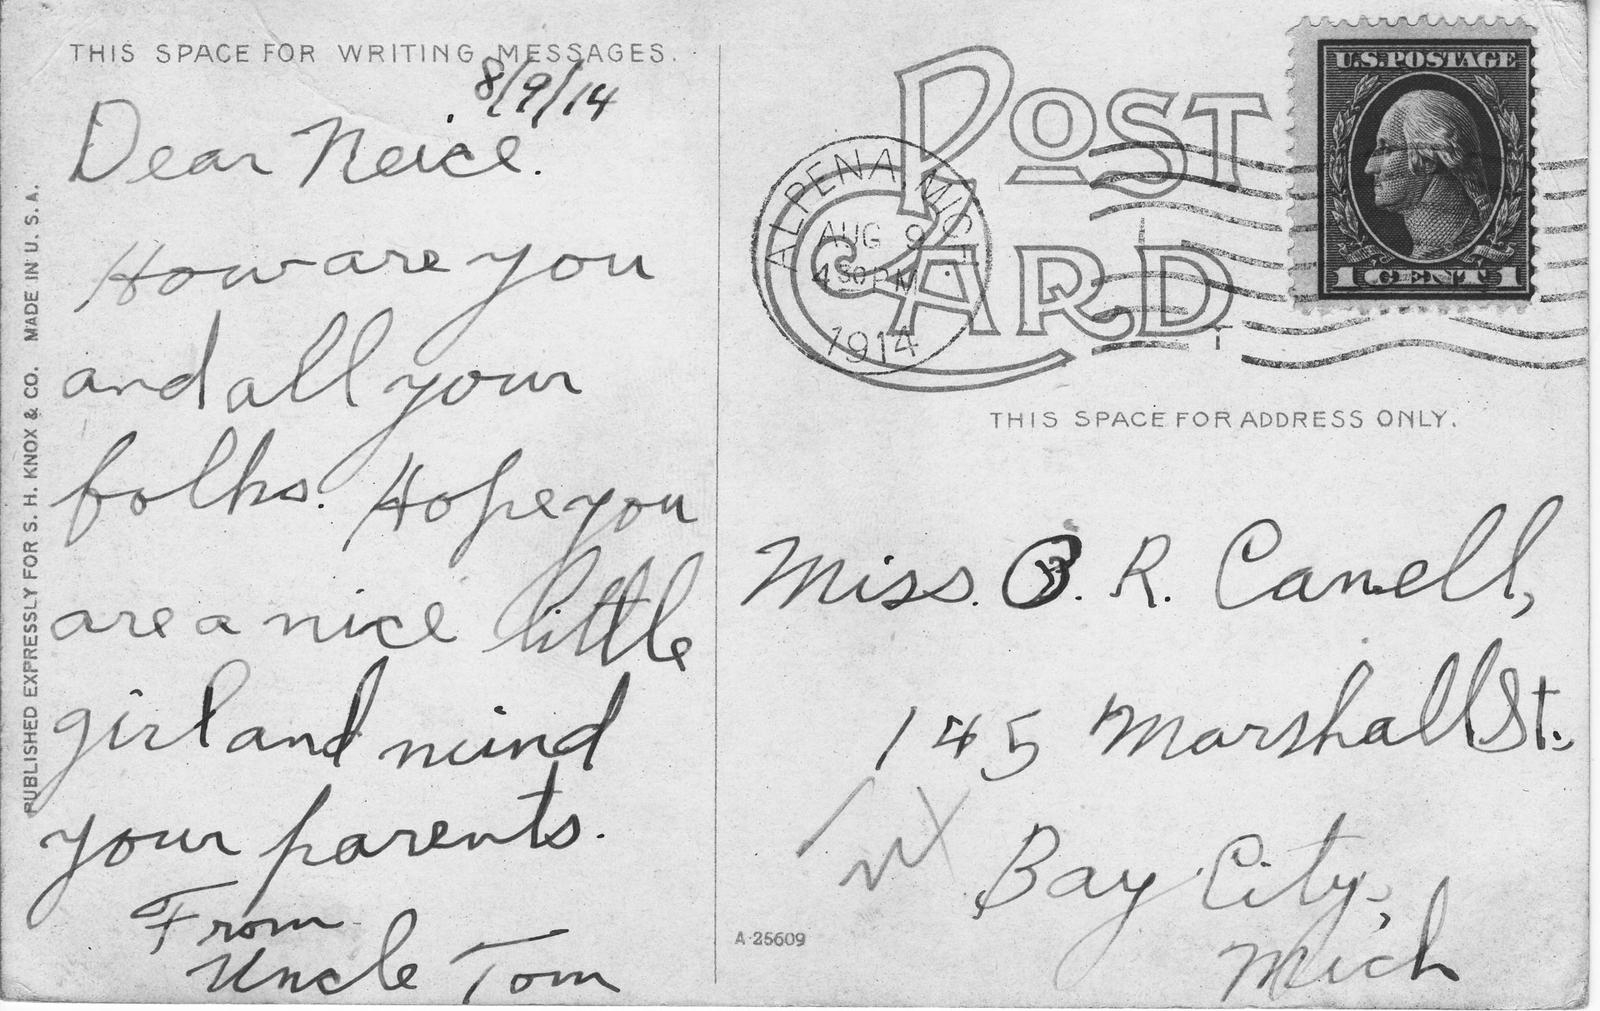 THIS SPACE FOR WRITING MESSAGES.
8/9/14
Dear Neice.
How are you
and all your
folks. Hope you
are a nice little
girl and mind
your parents.
From
Uncle Tom
PUBLISHED EXPRESSLY FOR S. H. KNOX & CO. MADE IN U. S. A.
POST
CARD
ALPENA, MICH.
AUG 9
4 30 PM
1914
U.S. POSTAGE
1 CENT 1
THIS SPACE FOR ADDRESS ONLY.
Miss. B. R. Canell,
145 Marshall St.
Bay City,
Mich
A-25609